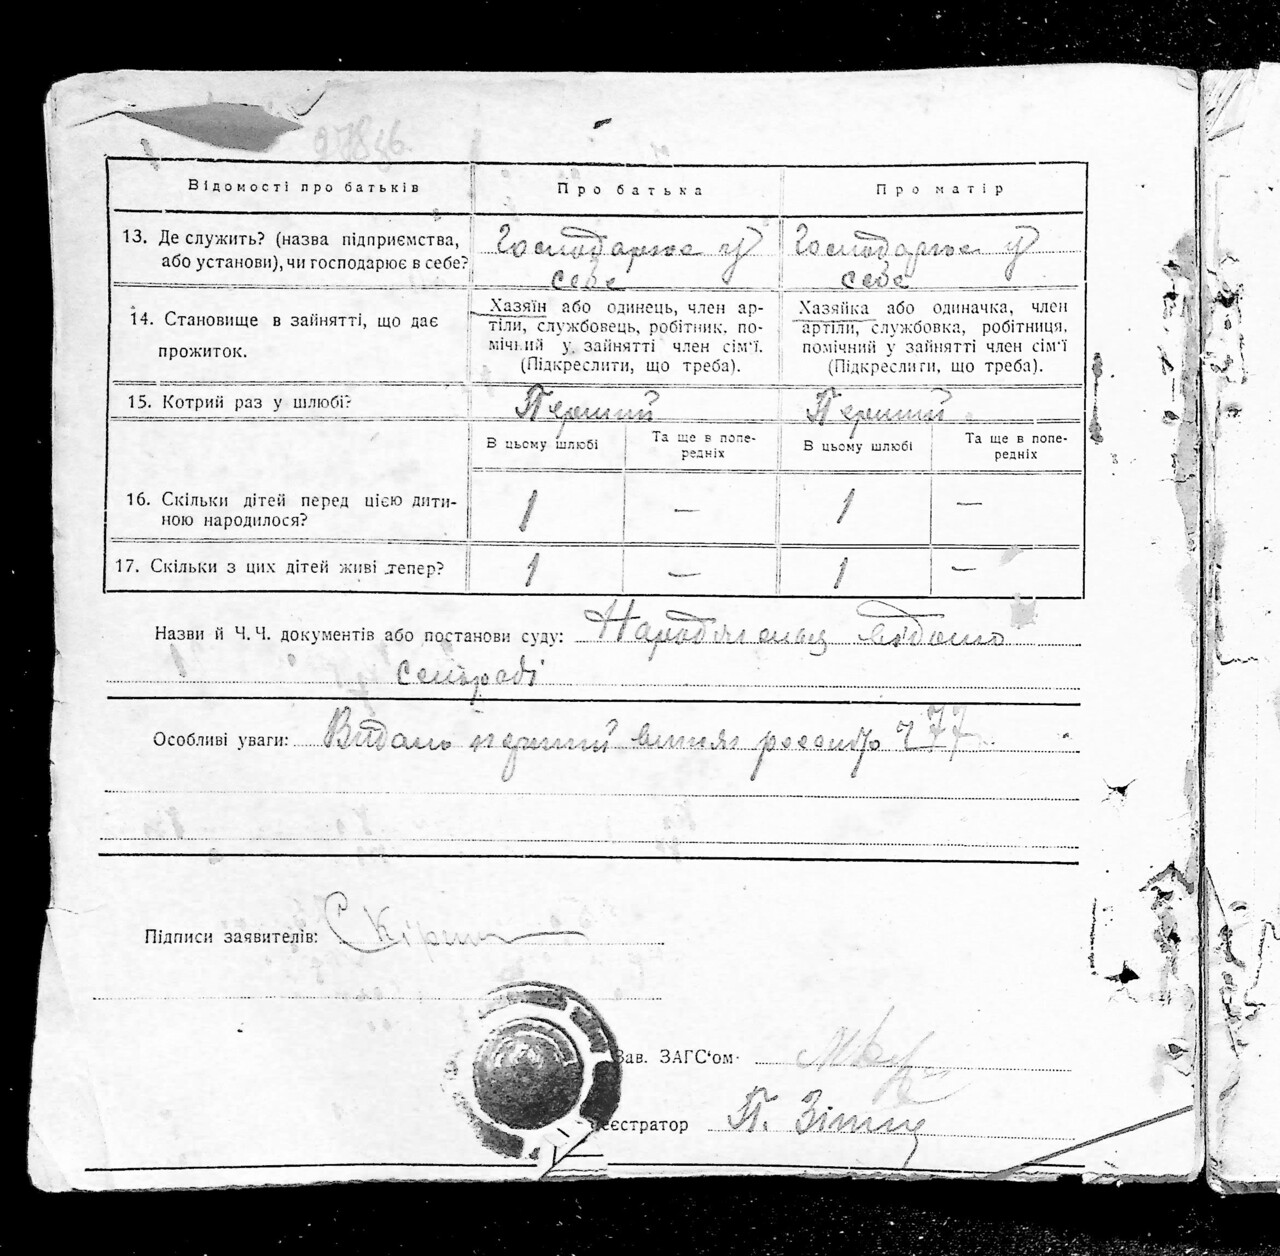 Відомості про батьків
Про батька
Про матір
13. Де служить? (назва підприємства,
або установи), чи господарює в себе?
Господарює у
себе
Господарює у
себе
14. Становище в зайнятті, що дає
прожиток.
Хазяїн або одинець, член ар-
тіли, службовець, робітник, по-
мічний у зайнятті член сім'ї.
(Підкреслити, що треба).
Хазяйка або одиначка, член
артіли, службовка, робітниця,
помічний у зайнятті член сім'ї
(Підкреслити, що треба).
15. Котрий раз у шлюбі?
Перший
Перший
В цьому шлюбі
Та ще в попе-
редніх
В цьому шлюбі
Та ще в попе-
редніх
16. Скільки дітей перед цією дити-
ною народилося?
1
—
1
—
17. Скільки з цих дітей живі тепер?
1
—
1
—
Назви й Ч.Ч. документів або постанови суду: відомо
сельраді
Особливі уваги: Видано перший ч 77
Підписи заявителів:
Зав. ЗАГС'ом
еєстратор П.